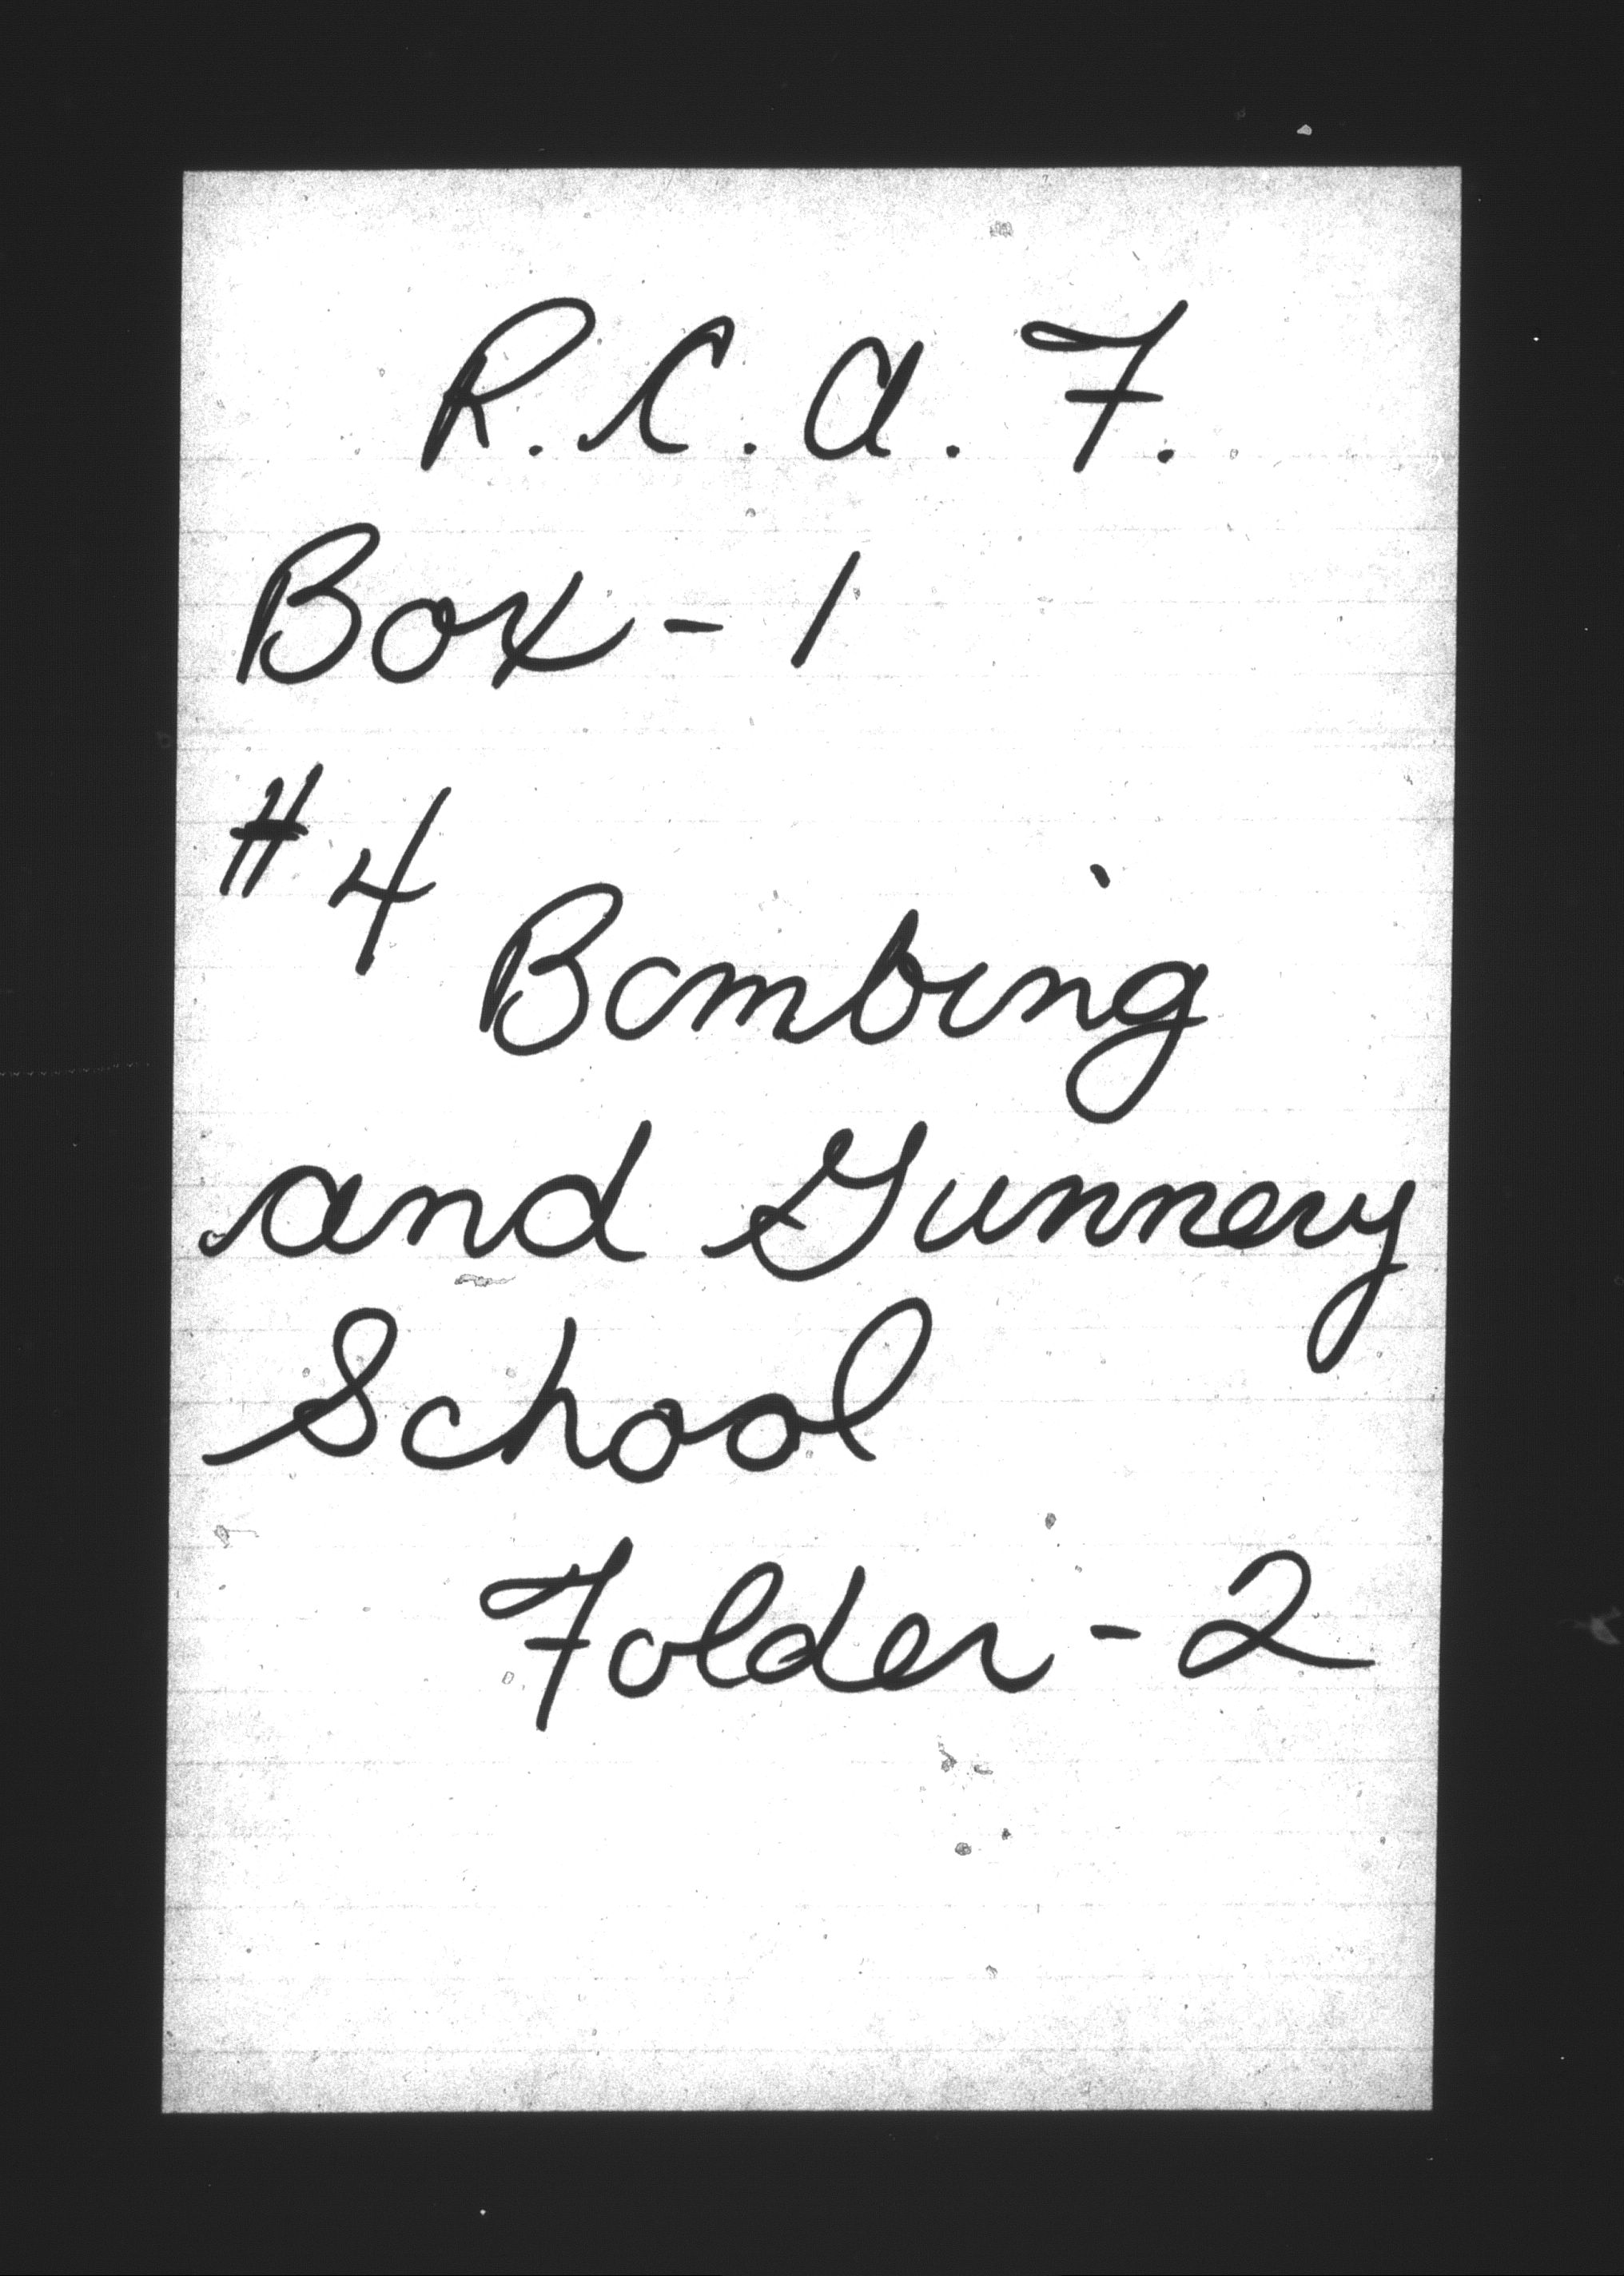 R.C.A.F.
Box - 1
#4
Bombing
and Gunnery
School
Folder - 2